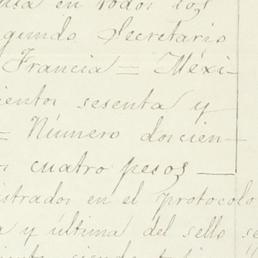 en todos los
gundo Secretario
Francia = Méxi-
cientos sesenta y
= Número doscien-
cuatro pesos —
istrados en el protocolo
y última del sello